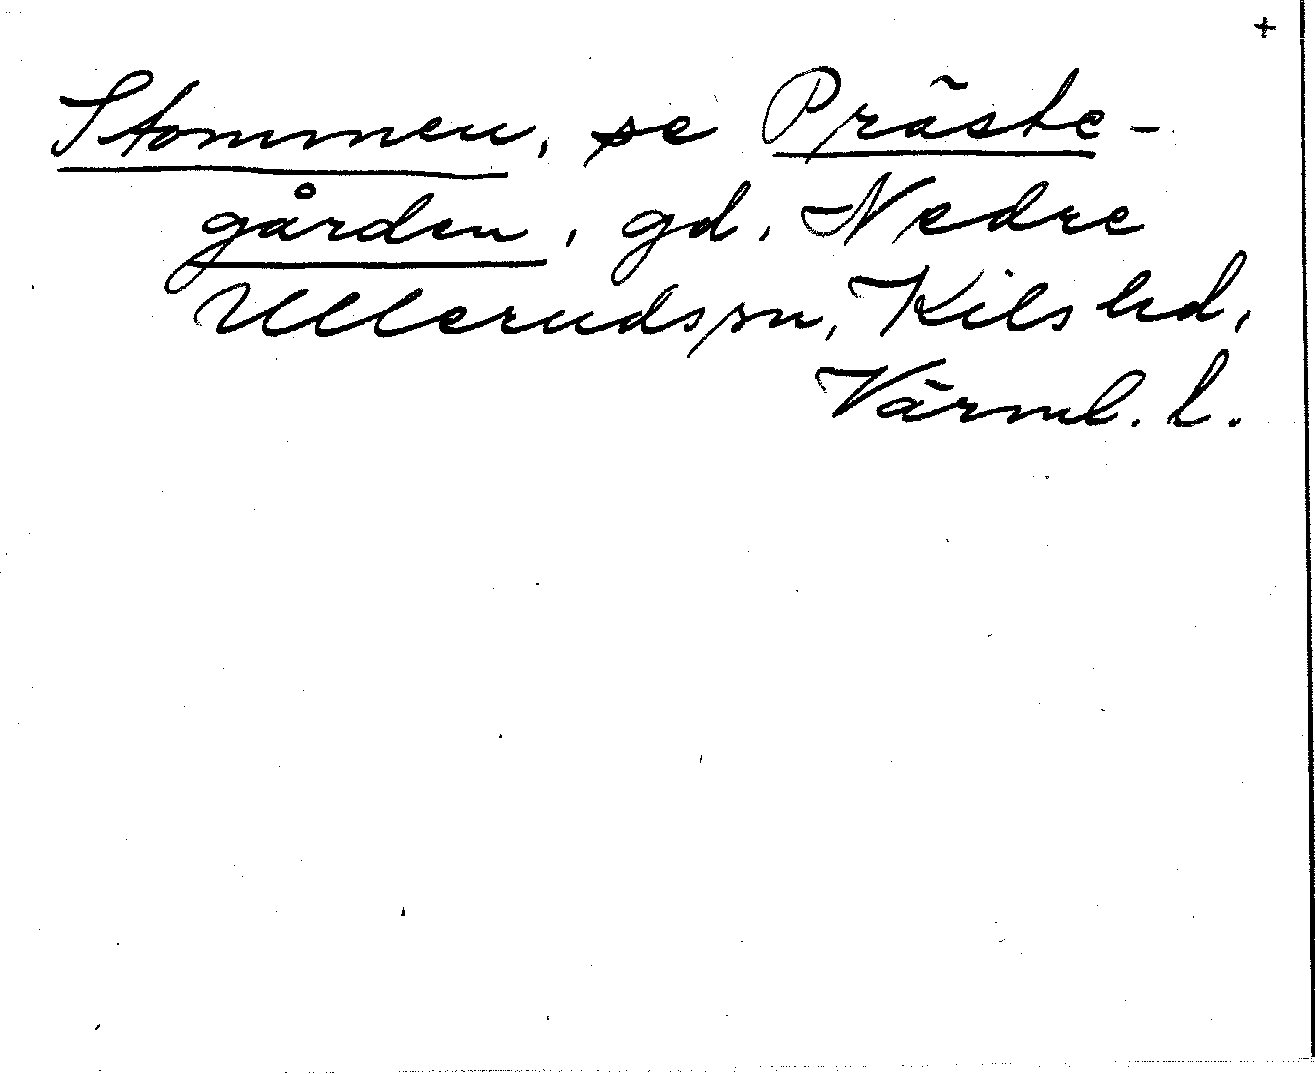 +
Stommen, se Präste-
gården, gd, Nedre
Ullerudssn, Kils hd,
Värml. l.